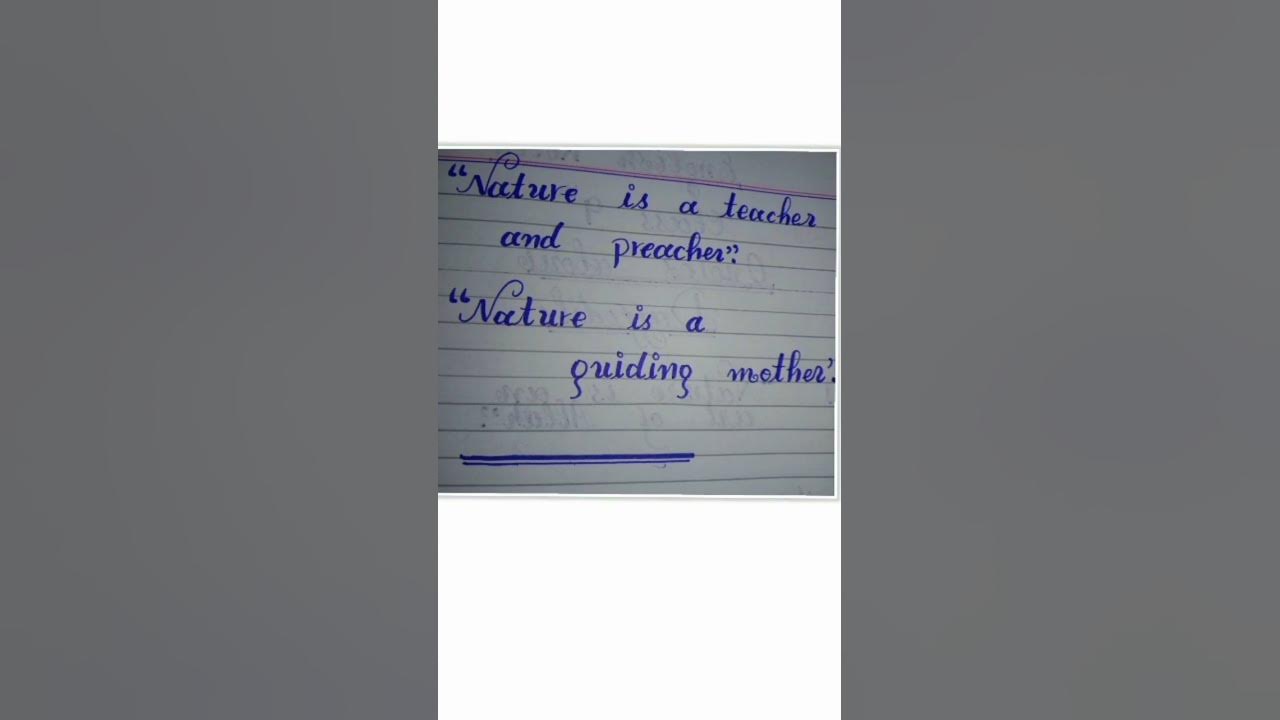 “Nature is a teacher
and preacher”.
“Nature is a
guiding mother”.